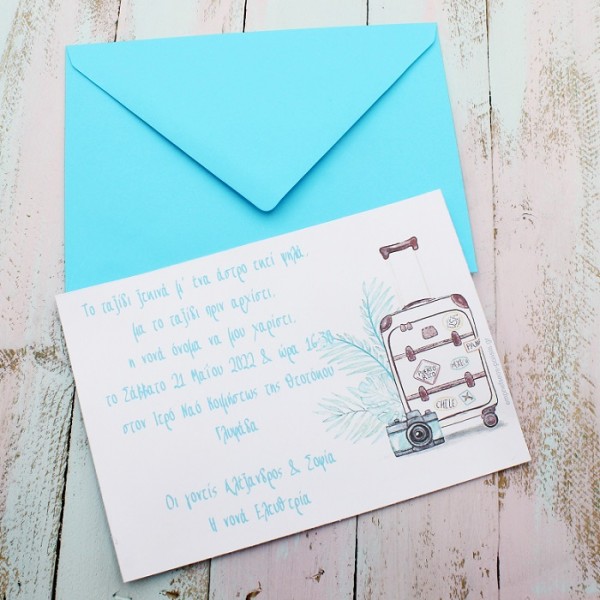 Το ταξίδι ξεκινά μ' ένα άστρο εκεί ψηλά.
μα το ταξίδι πριν αρχίσει.
η νονά όνομα να μου χαρίσει.
το Σάββατο 21 Μαΐου 2022 & ώρα 16:30
στον Ιερό Ναό Κοιμήσεως της Θεοτόκου
Γλυφάδα
Οι γονείς Αλέξανδρος & Σοφία
Η νονά Ελευθερία
CHILE